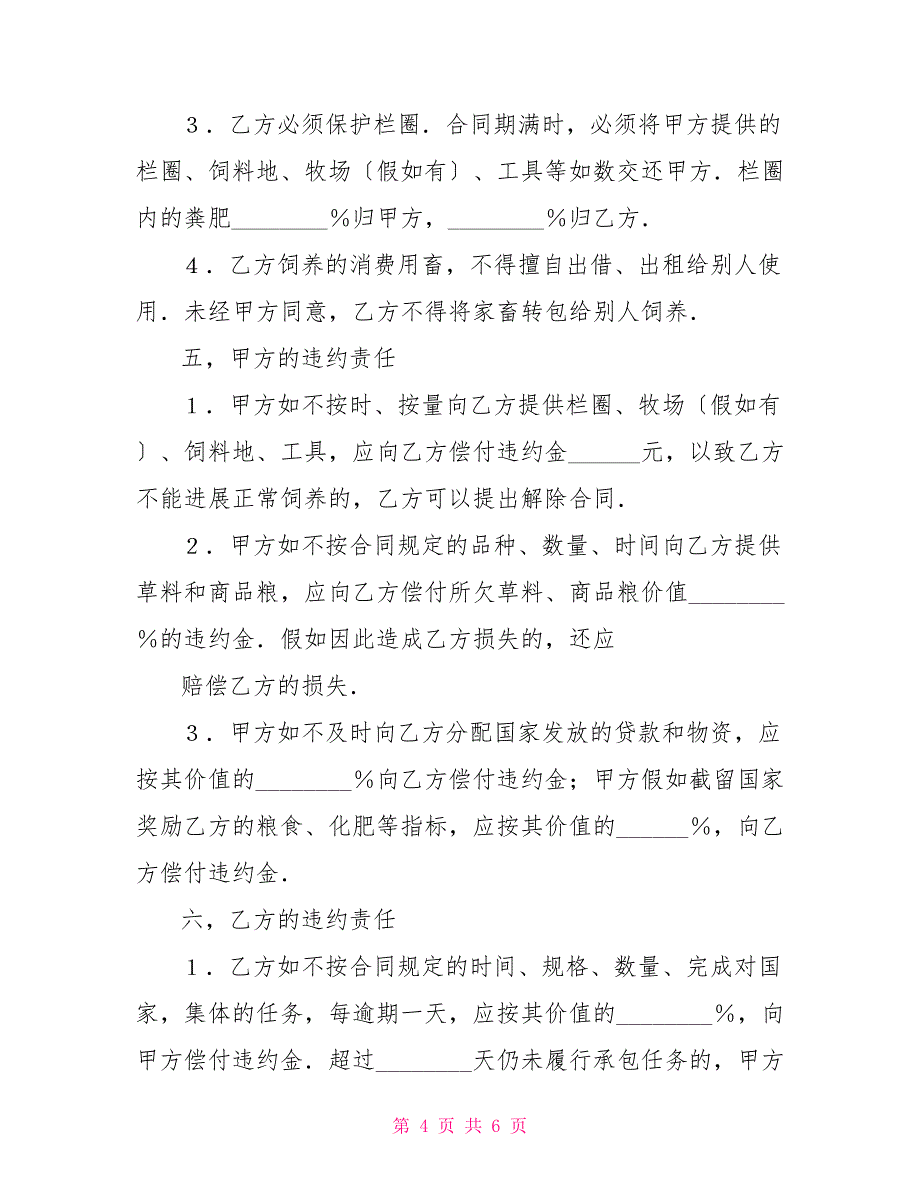 ３．乙方必须保护栏圈．合同期满时，必须将甲方提供的
栏圈、饲料地、牧场〔假如有〕、工具等如数交还甲方．栏圈
内的粪肥________％归甲方，________％归乙方．
４．乙方饲养的消费用畜，不得擅自出借、出租给别人使
用．未经甲方同意，乙方不得将家畜转包给别人饲养．
五，甲方的违约责任
１．甲方如不按时、按量向乙方提供栏圈、牧场〔假如有
〕、饲料地、工具，应向乙方偿付违约金______元，以致乙方
不能进展正常饲养的，乙方可以提出解除合同．
２．甲方如不按合同规定的品种、数量、时间向乙方提供
草料和商品粮，应向乙方偿付所欠草料、商品粮价值________
％的违约金．假如因此造成乙方损失的，还应
赔偿乙方的损失．
３．甲方如不及时向乙方分配国家发放的贷款和物资，应
按其价值的________％向乙方偿付违约金；甲方假如截留国家
奖励乙方的粮食、化肥等指标，应按其价值的______％，向乙
方偿付违约金．
六，乙方的违约责任
１．乙方如不按合同规定的时间、规格、数量、完成对国
家，集体的任务，每逾期一天，应按其价值的________％，向
甲方偿付违约金．超过________天仍未履行承包任务的，甲方
第 4 页 共 6 页